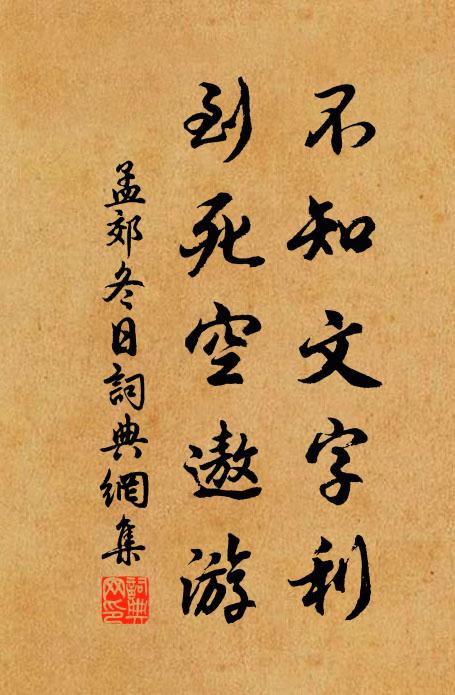 不知文字利
到死空遨游
孟郊冬日詞典網集
詞典網印